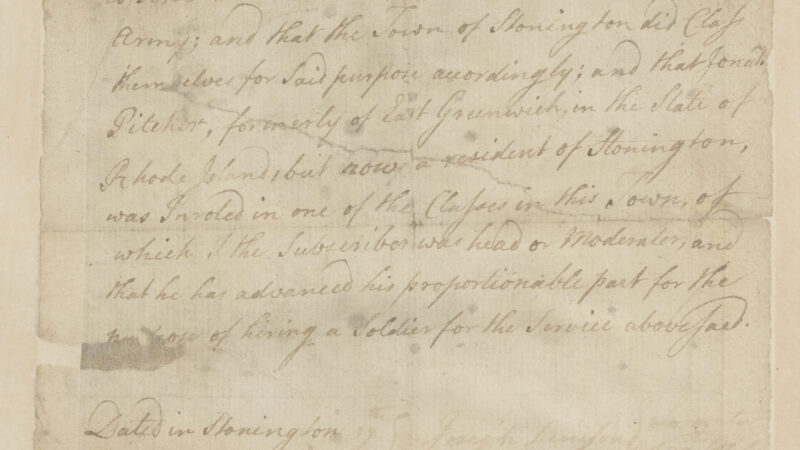 Army; and that the Town of Stonington did Class
themselves for Said purpose accordingly; and that Jonath.
Pitcher, formerly of East Greenwich, in the State of
Rhode Island, but now a resident of Stonington,
was Inroled in one of the Classes in this Town, of
which I the Subscriber was head or Moderater, and
that he has advanced his proportionable part for the
of hiring a Soldier for the Service above Said.
Dated in Stonington
Joseph Denison